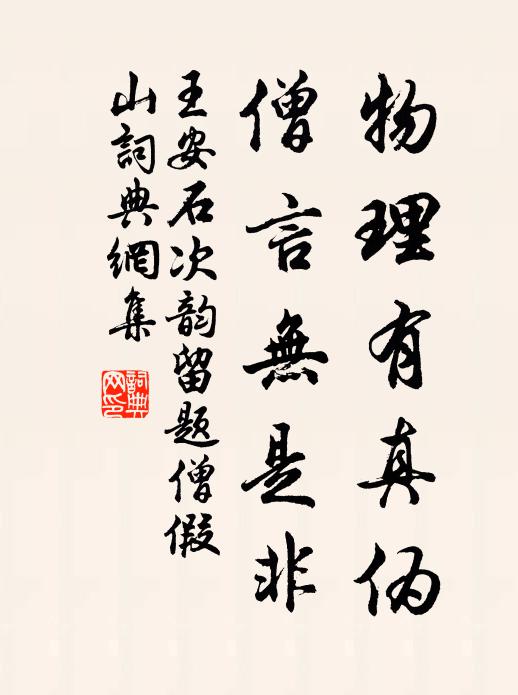 物理有真伪
僧言無是非
王安石次韵留题僧假
山詞典網集
詞典
网印